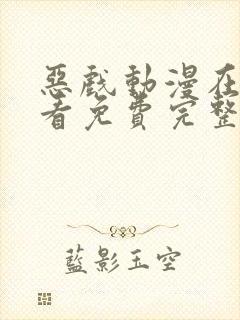 惡戲動漫在
看免費完整
藍影玉空